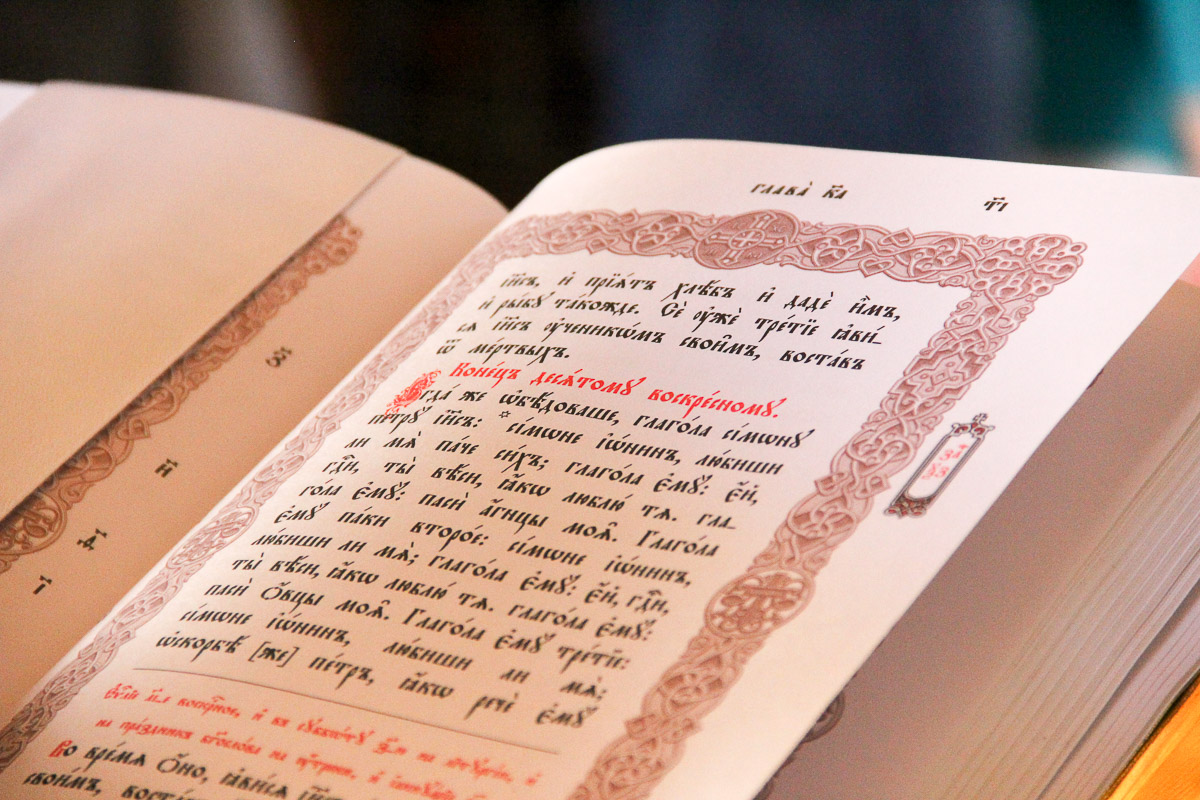 глава̀ к҃а
т҃і
і҆и҃съ, и҆ прїѧ́тъ хлѣ́бъ и҆ дадѐ и҆̀мъ,
и҆ ры́бꙋ та́кожде. Сѐ ᲂу҆жѐ тре́тїе ꙗ҆ви́_
сѧ і҆и҃съ ᲂу҆ченикѡ́мъ свои̑мъ, воста́въ
ѿ ме́ртвыхъ.
Коне́цъ десѧ́томꙋ воскре́сномꙋ.
гда́ же ѡ҆бѣ́доваше, глаго́ла сі́мѡнꙋ
петрꙋ̀ і҆и҃съ: * сі́мѡне і҆ѡ́нинъ, лю́биши
ли мѧ̀ па́че си́хъ; глаго́ла є҆мꙋ̀: є҆́й,
гдⷭ҇и, ты̀ вѣ́си, ꙗ҆́кѡ люблю́ тѧ. гла_
го́ла є҆мꙋ̀: пасѝ а҆́гнцы моѧ̑. Глаго́ла
є҆мꙋ̀ па́ки второ́е: сі́мѡне і҆ѡ́нинъ,
лю́биши ли мѧ̀; глаго́ла є҆мꙋ̀: є҆́й, гдⷭ҇и,
ты̀ вѣ́си, ꙗ҆́кѡ люблю́ тѧ. глаго́ла є҆мꙋ̀:
пасѝ ѻ҆́вцы моѧ̑. Глаго́ла є҆мꙋ̀ тре́тїе:
сі́мѡне і҆ѡ́нинъ, лю́биши ли мѧ̀;
ѡ҆скорбѣ́ [же] пе́тръ, ꙗ҆́кѡ речѐ є҆мꙋ̀
на
на
Во вре́мѧ ѻ҆́но, ꙗ҆ви́сѧ і҆и҃съ
свои̑мъ,
за
ѯз
и҃
д҃
і҃